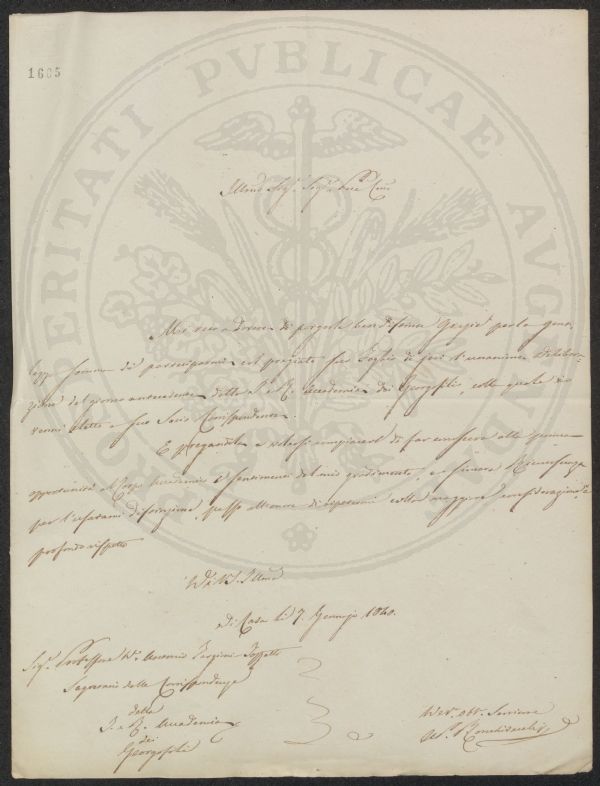 1605
PROSPERITATI PVBLICAE AVGENDAE
Illmo Sigr. Sigr.
Mi reco a dovere di porgerle grazie per la gen-
tezza somma di parteciparmi col pregiato suo Foglio di jeri l'unanime Delibera-
zione del giorno antecedente della I. e R. Accademia dei Georgofili, colla quale io
venni eletto a suo Socio Corrispondente.
E pregandola a volersi compiacere di far conoscere alla prima
opportunità al Corpo Accademico i sentimenti del mio gradimento, e sincera Riconoscenza
per l'usatami distinzione, passo all'onore di ripetermi colla maggiore considerazione, e
profondo rispetto
Di V. S. Illma
Di Casa li 7. Gennajo 1840.
Sigr. Professore Dr. Antonio Targioni Tozzetti
Segretario delle Corrispondenze
della
I. e R. Accademia
dei
Georgofili
Dev. Obb. Servitore